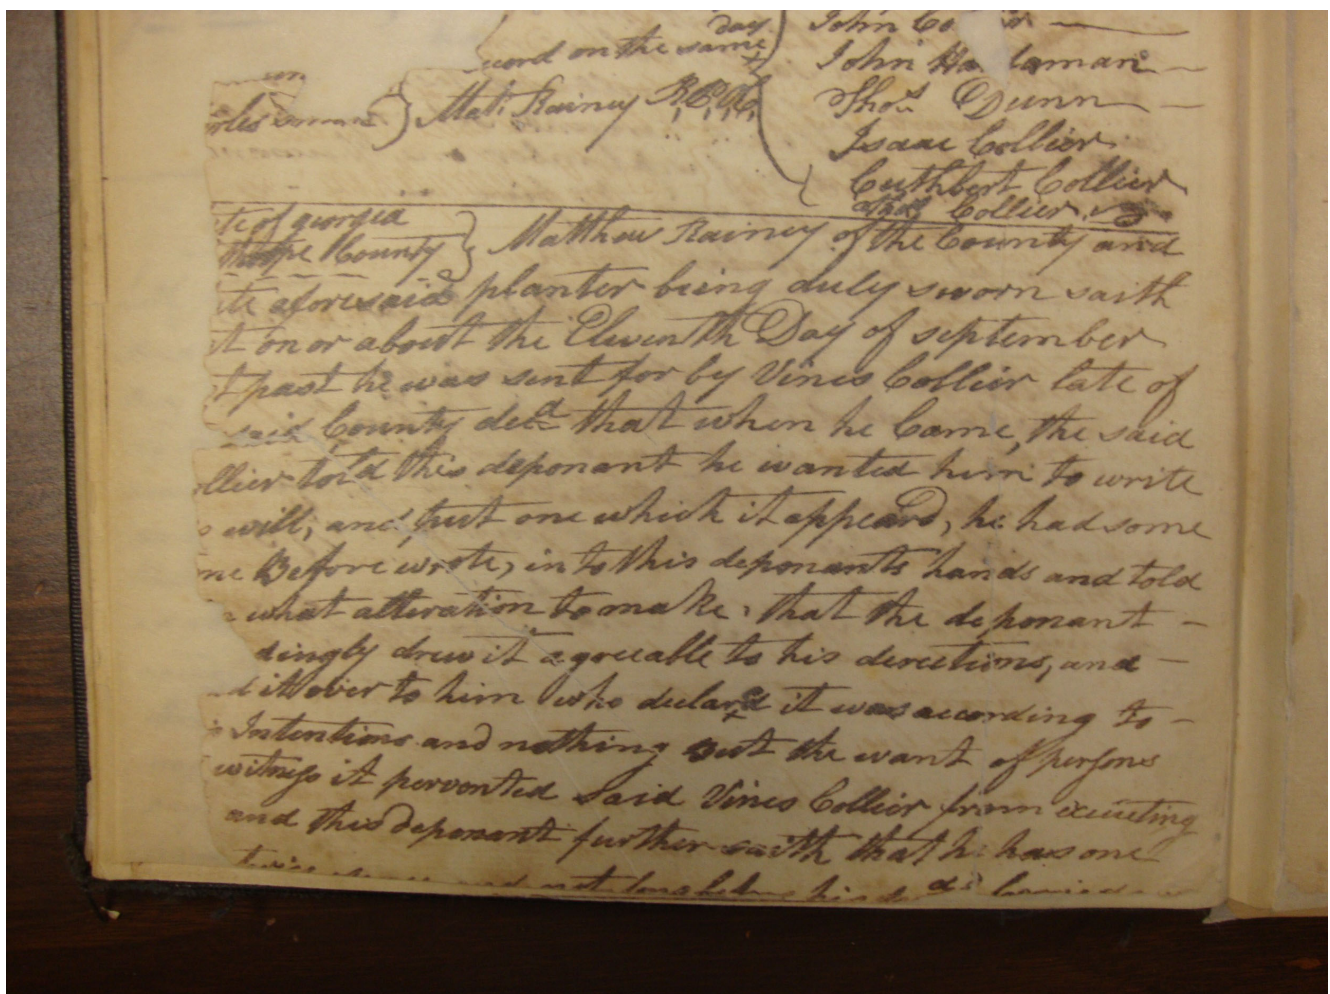 day
John Co
cord on the same
John Hardaman
Mat: Rainey R.P.O.C.
Thos Dunn
Isaac Collier
Cuthbert Collier
Collier
te of georgia
thorpe County
Matthew Rainey of the County and
te aforesaid planter being duly sworn saith
t on or about the Eleventh Day of september
t past he was sent for by Vines Collier late of
said County decd that when he Came, the said
llier told this deponant he wanted him to write
s will, and put one which it appeard, he had some
me Before wrote, in to this deponants hands and told
what alteration to make, that the deponant -
dingly drew it agreeable to his derections, and -
d it over to him who declard it was according to -
Intentions and nothing but the want of persons
witness it pervented Said Vines Collier from executing
and this deponant further saith that he has one